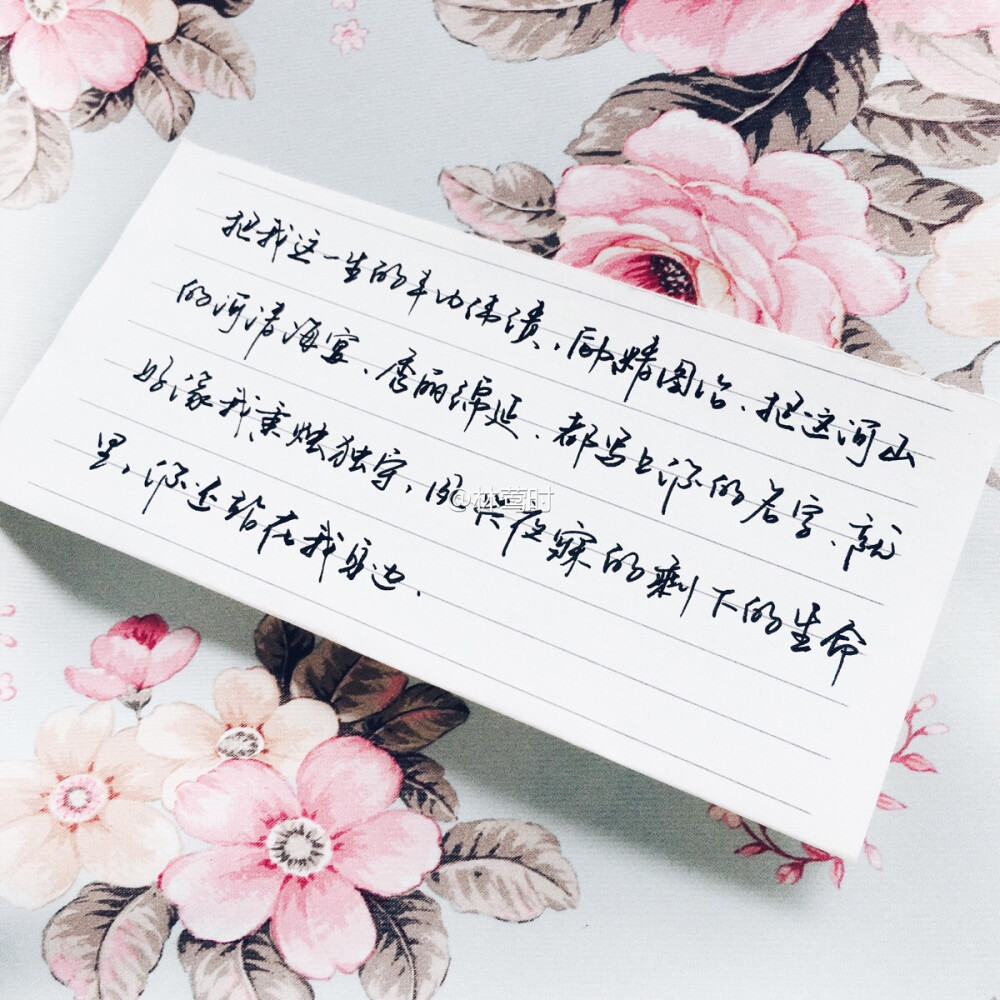 把我这一生的丰功伟绩,励精图治、把这河山
的河清海宴、秀丽绵延、都写上你的名字、就
好像我秉烛独守,夙兴夜寐的剩下的生命
里,你还站在我身边.
@林莺时